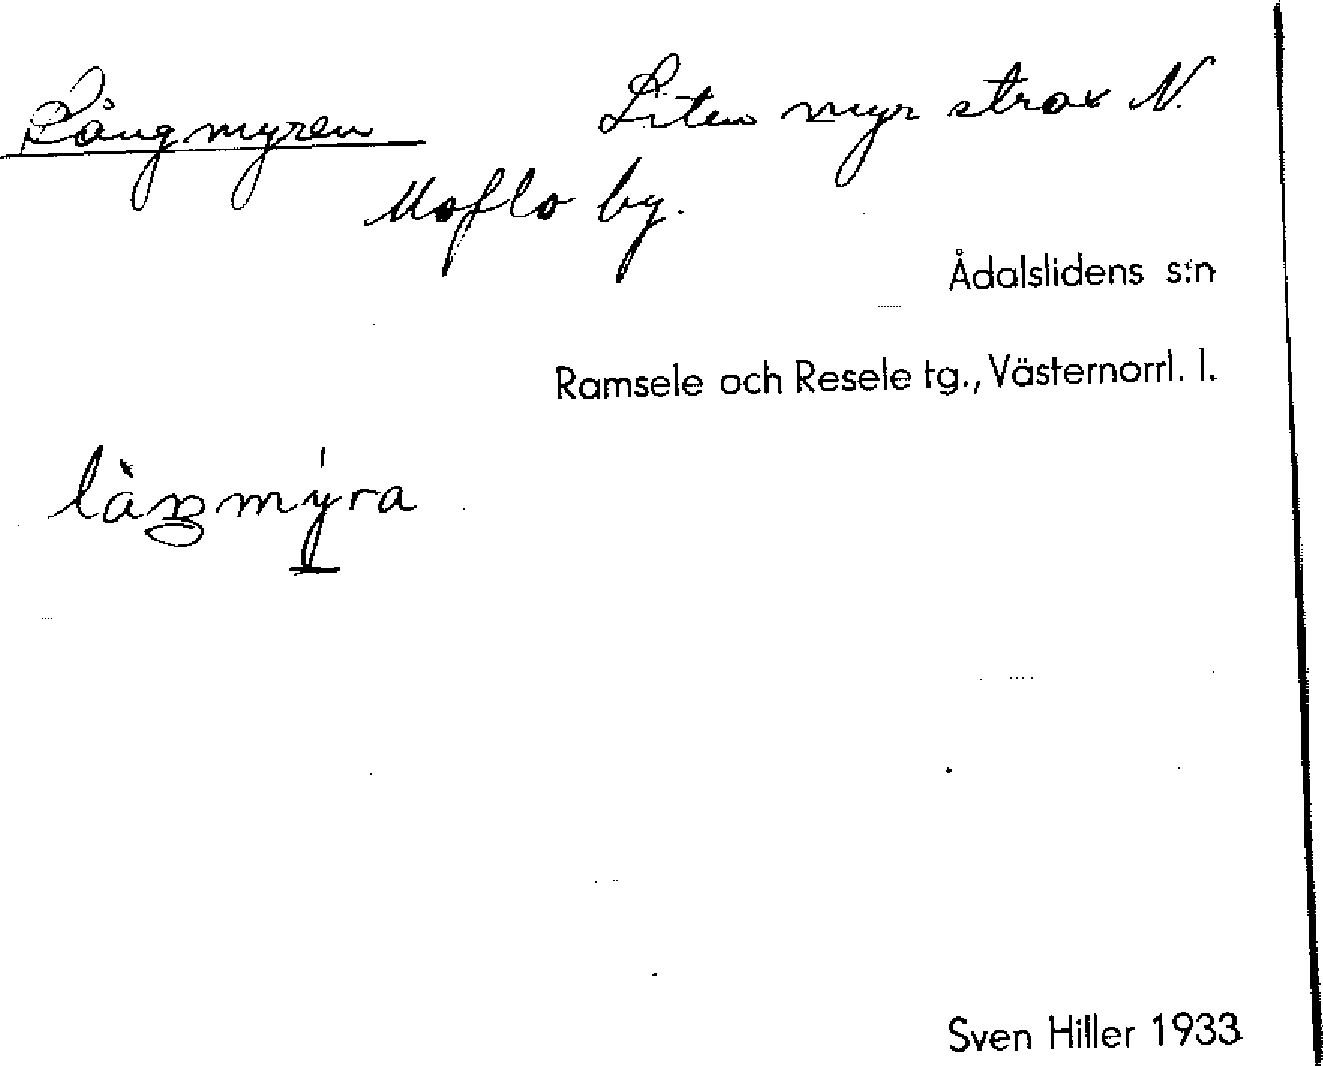 Långmyren Liten myr strax N.
Moflo by.
Ådalslidens s:n
Ramsele och Resele tg., Västernorrl. l.
Sven Hiller 1933